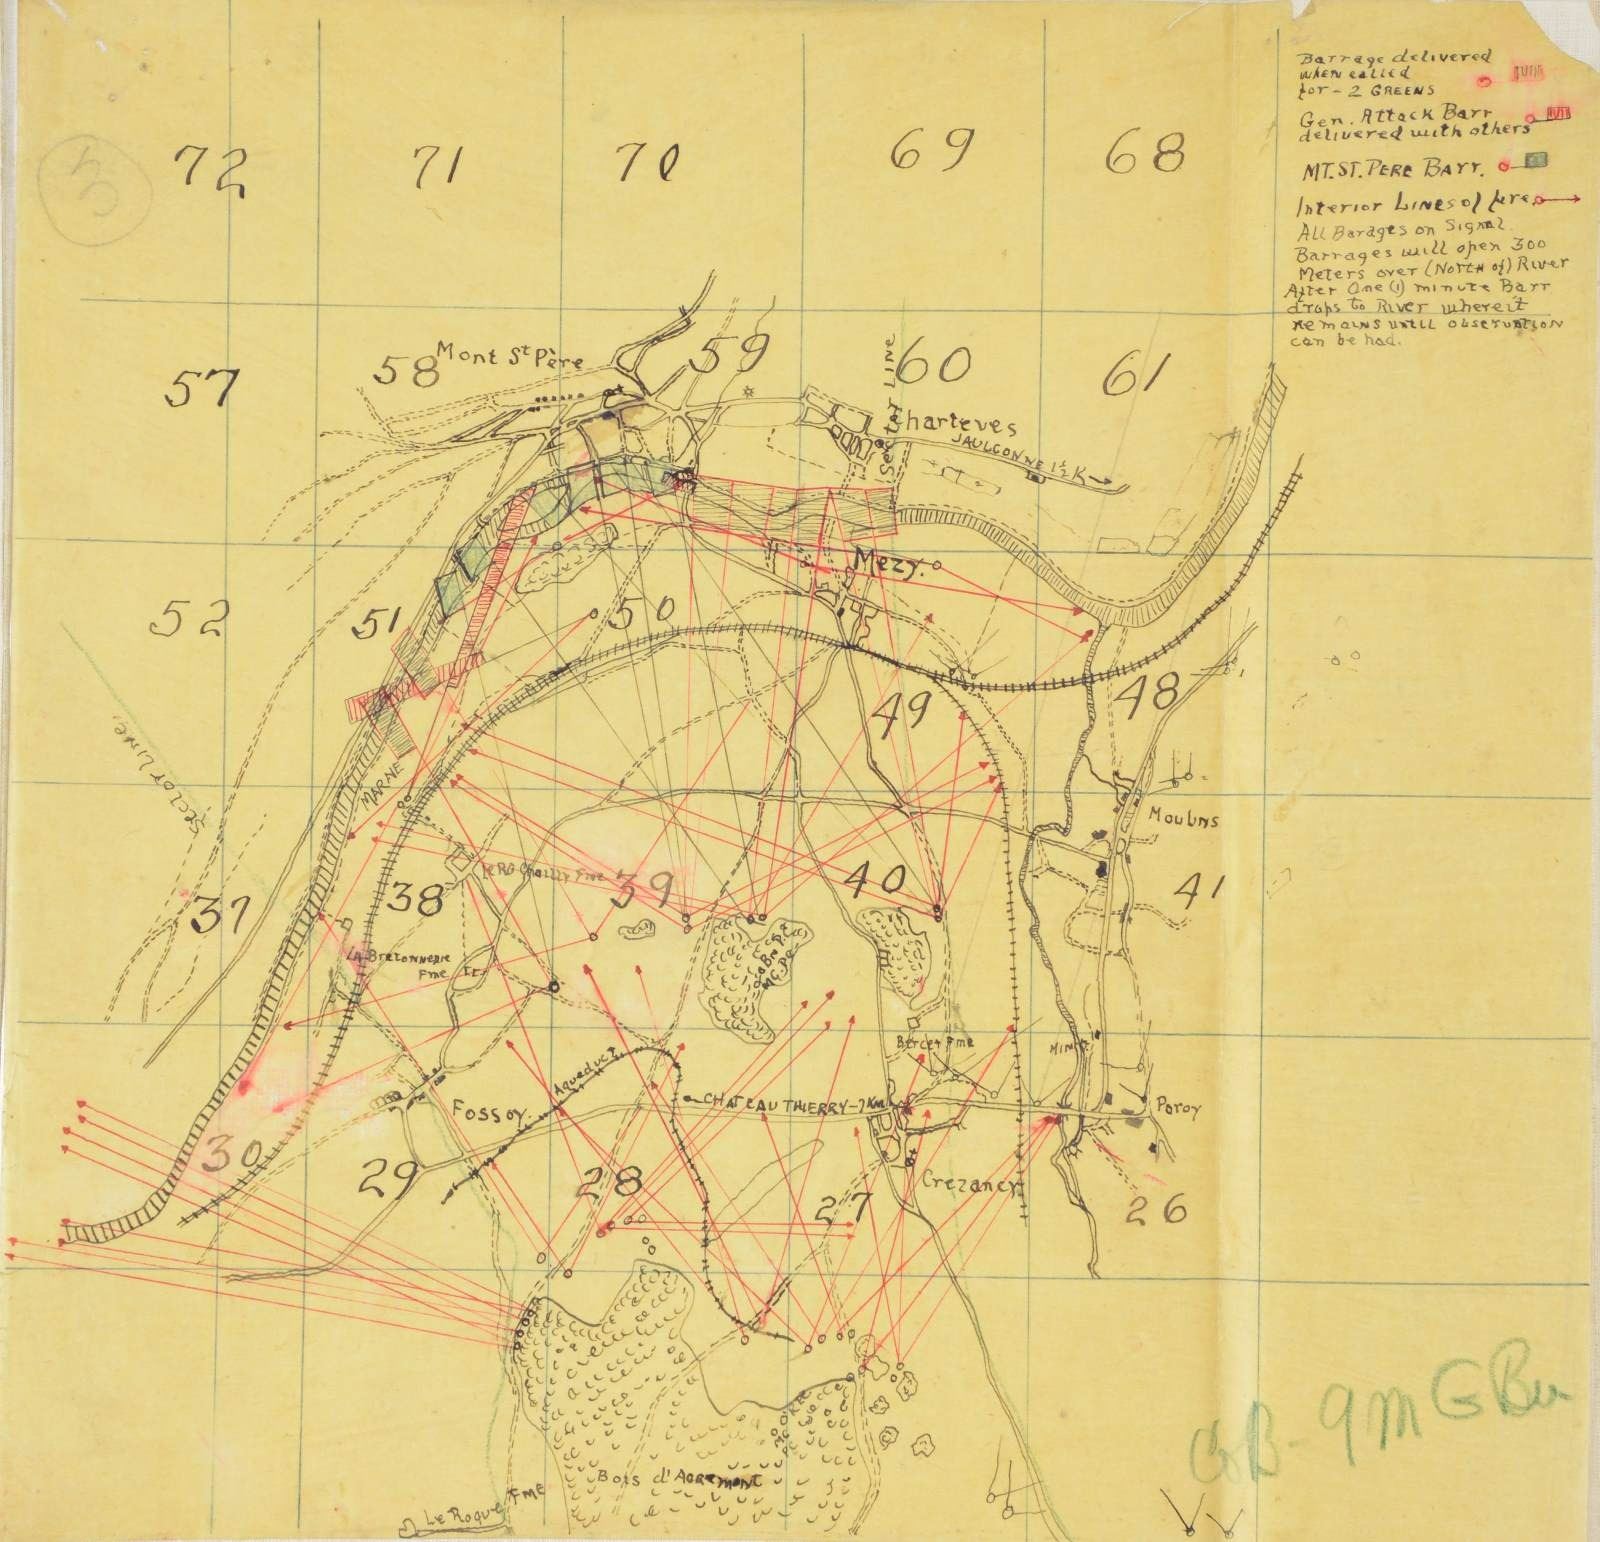 Barrage delivered
when called
for - 2 GREENS
Gen. Attack Barr
delivered with others
MT. ST. PERE BARR.
Interior Lines of fire
All Barages on Signal.
Barrages will open 300
Meters over (North of) River
After One (1) minute Barr
drops to River where it
remains until observation
can be had.
3
72
71
70
69
68
57
58
Mont St Père
59
60
61
Sector LINE
Charteves
JAULGONNE 1½ K
Mezy.
52
51
50
49
48
Sector Line
MARNE
Moulins
37
38
39
40
41
La Bretonnerie
Fme
Aqueduct
Fossoy
CHATEAU THIERRY - 7 Km
Paroy
30
29
28
27
26
Crezancy
Bois d'Agremont
Le Roque FME
9 M G Bn